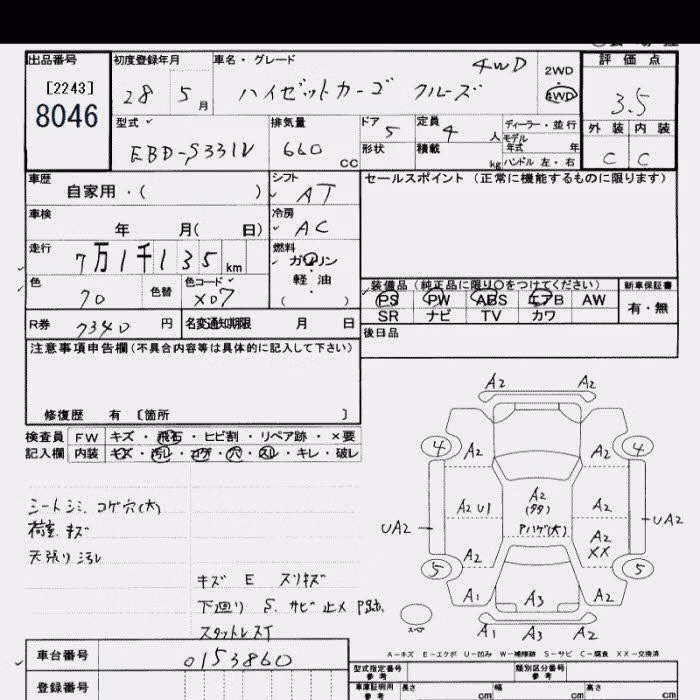 出品番号 初度登録年月 車名・グレード 4WD 2WD 評価点
[2243] 28 5月 ハイゼットカーゴ クルーズ 4WD 3.5
8046
型式 排気量 ドア 5 定員 4人 ディーラー・並行 外装 内装
EBD-S331V 660 CC 形状 積載 kg モデル年式 年 C C
ハンドル 左・右
車歴 シフト セールスポイント (正常に機能するものに限ります)
自家用・( ) AT
車検 冷房
年 月( 日) AC
走行 燃料
7万1千135km ガソリン
色 色替 色コード 軽油 装備品 (純正品に限り○をつけてください) 新車保証書
X07 ( ) PS PW ABS エアB AW 有・無
SR ナビ TV カワ
R券 7340円 名変通知期限 月 日 後日品
注意事項申告欄(不具合内容等は具体的に記入して下さい)
修復歴 有 〔箇所 〕
検査員 FW キズ・飛石・ヒビ割・リペア跡・×要
記入欄 内装 キズ・汚レ・コゲ・穴・スレ・キレ・破レ
シートシミ. コゲ穴(大)
荷室. キズ
天張り 汚レ
キズ E スリキズ
下廻り S. サビ止メ P跡.
スタットレスイ
A2 A2
4 A2 A2 4
A2U1 A2 A2
UA2 UA2
Pハゲ(大) A2
A2 XX
5 5
A1 A3 A2
スペア A1 A3 A2
A-キズ E-エクボ U-凹み W-補修跡 S-サビ C-腐食 XX-交換済
車台番号 0153860 型式指定番号 類別区分番号
参考 参考
登録番号 車庫証明用 長さ 幅 高さ
参考 cm cm cm